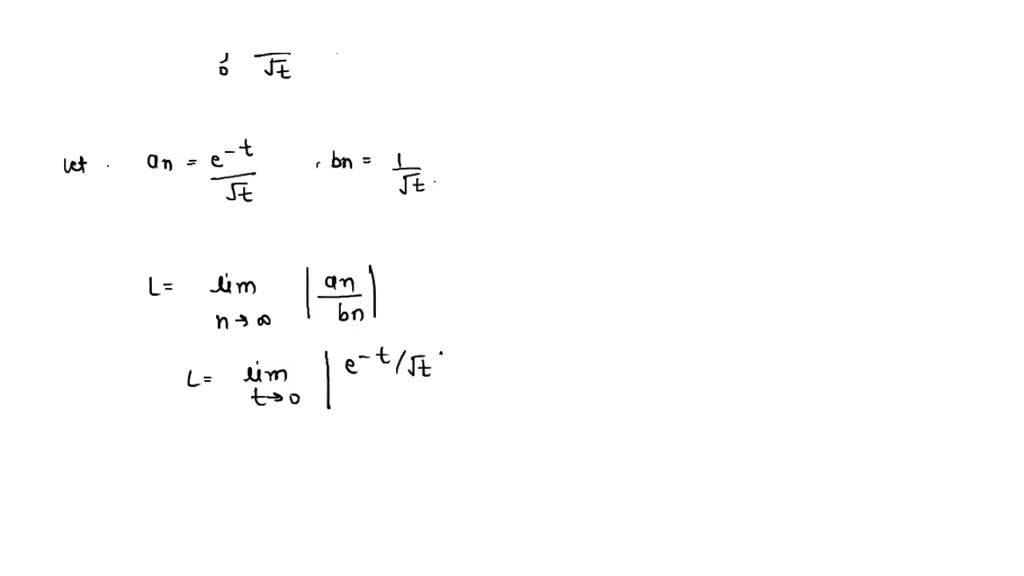 ∫₀ ‾/√t
let . an = e^-t/√t , bn = 1/√t .
L= lim n→∞ |an/bn|
L= lim t→0 | e^-t/√t